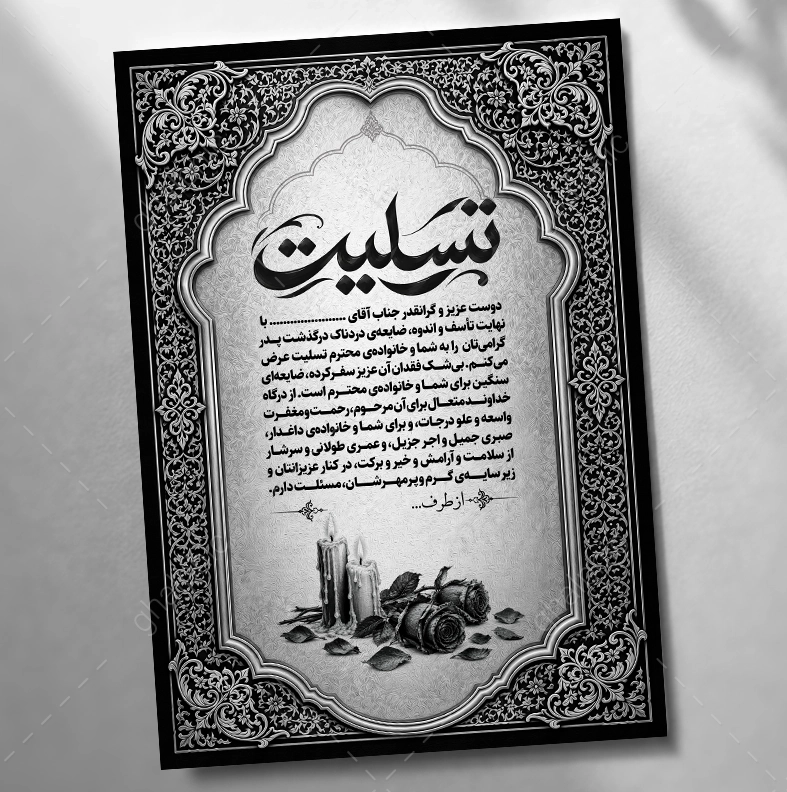 تسلیت
دوست عزیز و گرانقدر جناب آقای ...................... با
نهایت تأسف و اندوه، ضایعه‌ی دردناک درگذشت پدر
گرامی‌تان را به شما و خانواده‌ی محترم تسلیت عرض
می‌کنم. بی‌شک فقدان آن عزیز سفرکرده، ضایعه‌ای
سنگین برای شما و خانواده‌ی محترم است. از درگاه
خداوند متعال برای آن مرحوم، رحمت و مغفرت
واسعه و علو درجات، و برای شما و خانواده‌ی داغدار،
صبری جمیل و اجر جزیل، و عمری طولانی و سرشار
از سلامت و آرامش و خیر و برکت، در کنار عزیزانتان و
زیر سایه‌ی گرم و پرمهرشان، مسئلت دارم.
از طرف...